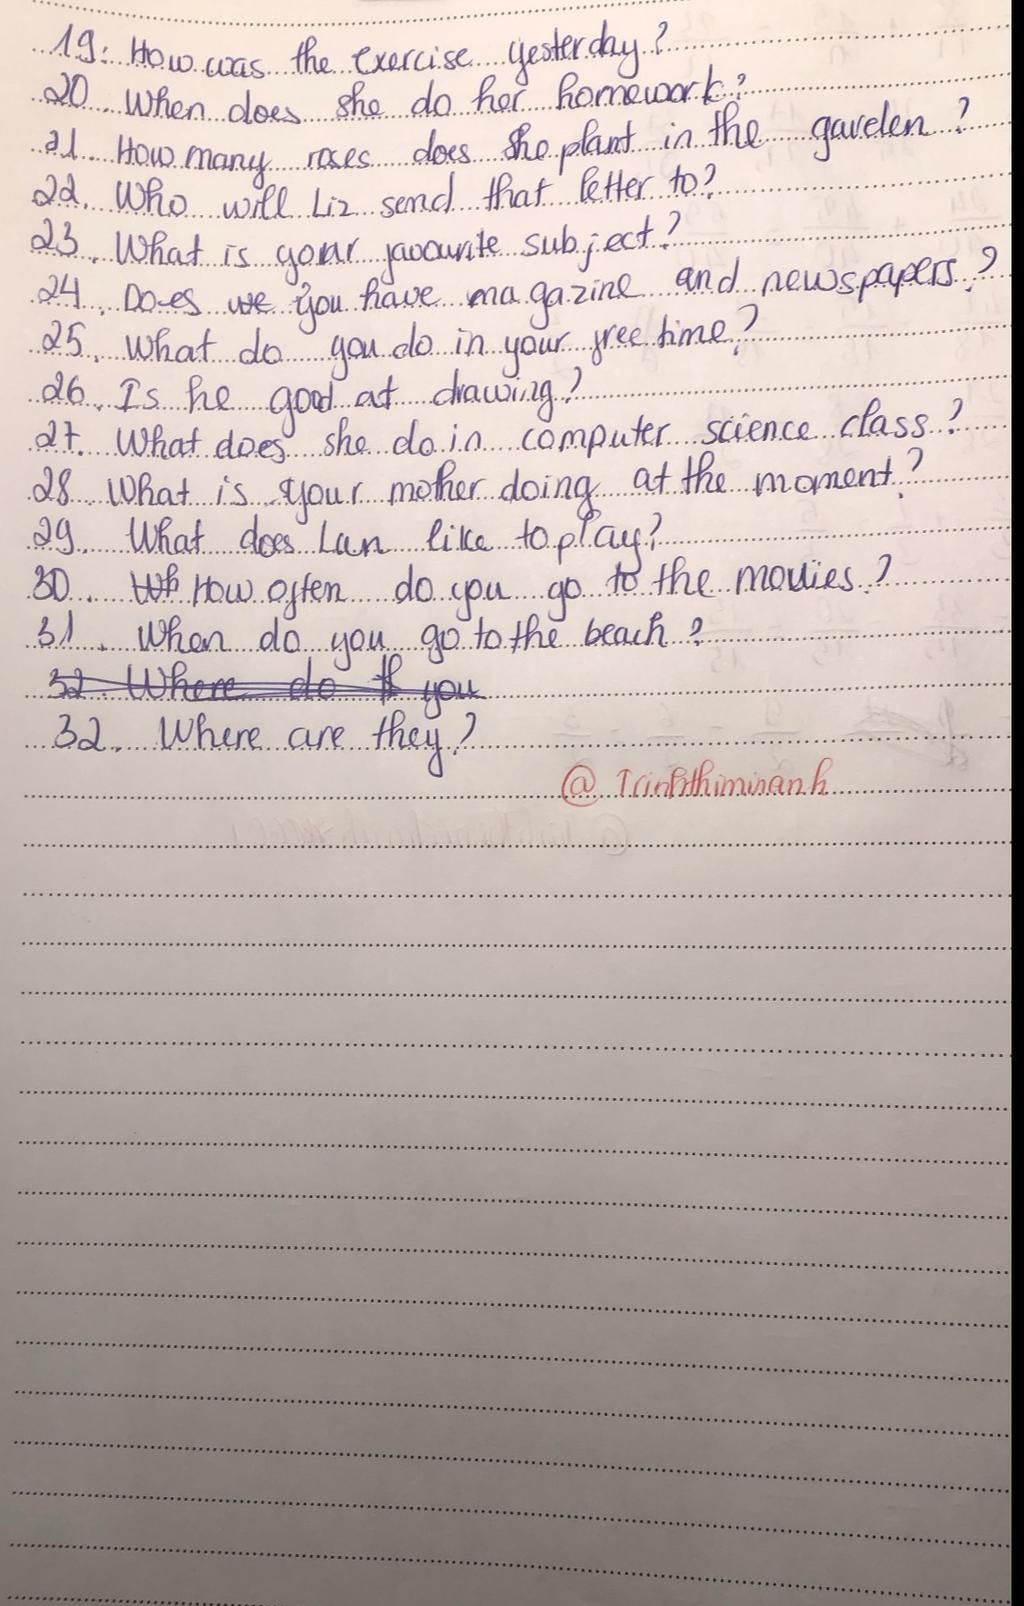 19: How was the exercise yesterday?
20. When does she do her homework?
21. How many roses does she plant in the gavelen?
22. Who will Liz send that letter to?
23. What is your favourite subject?
24. Does we you have magazine and newspapers?
25. What do you do in your free time?
26. Is he good at drawing?
27. What does she do in computer science class?
28. What is your mother doing at the moment?
29. What does Lan like to play?
30. Wh How often do you go to the movies?
31. When do you go to the beach?
32 Where do th you
32. Where are they?
@ Trinhthiminanh